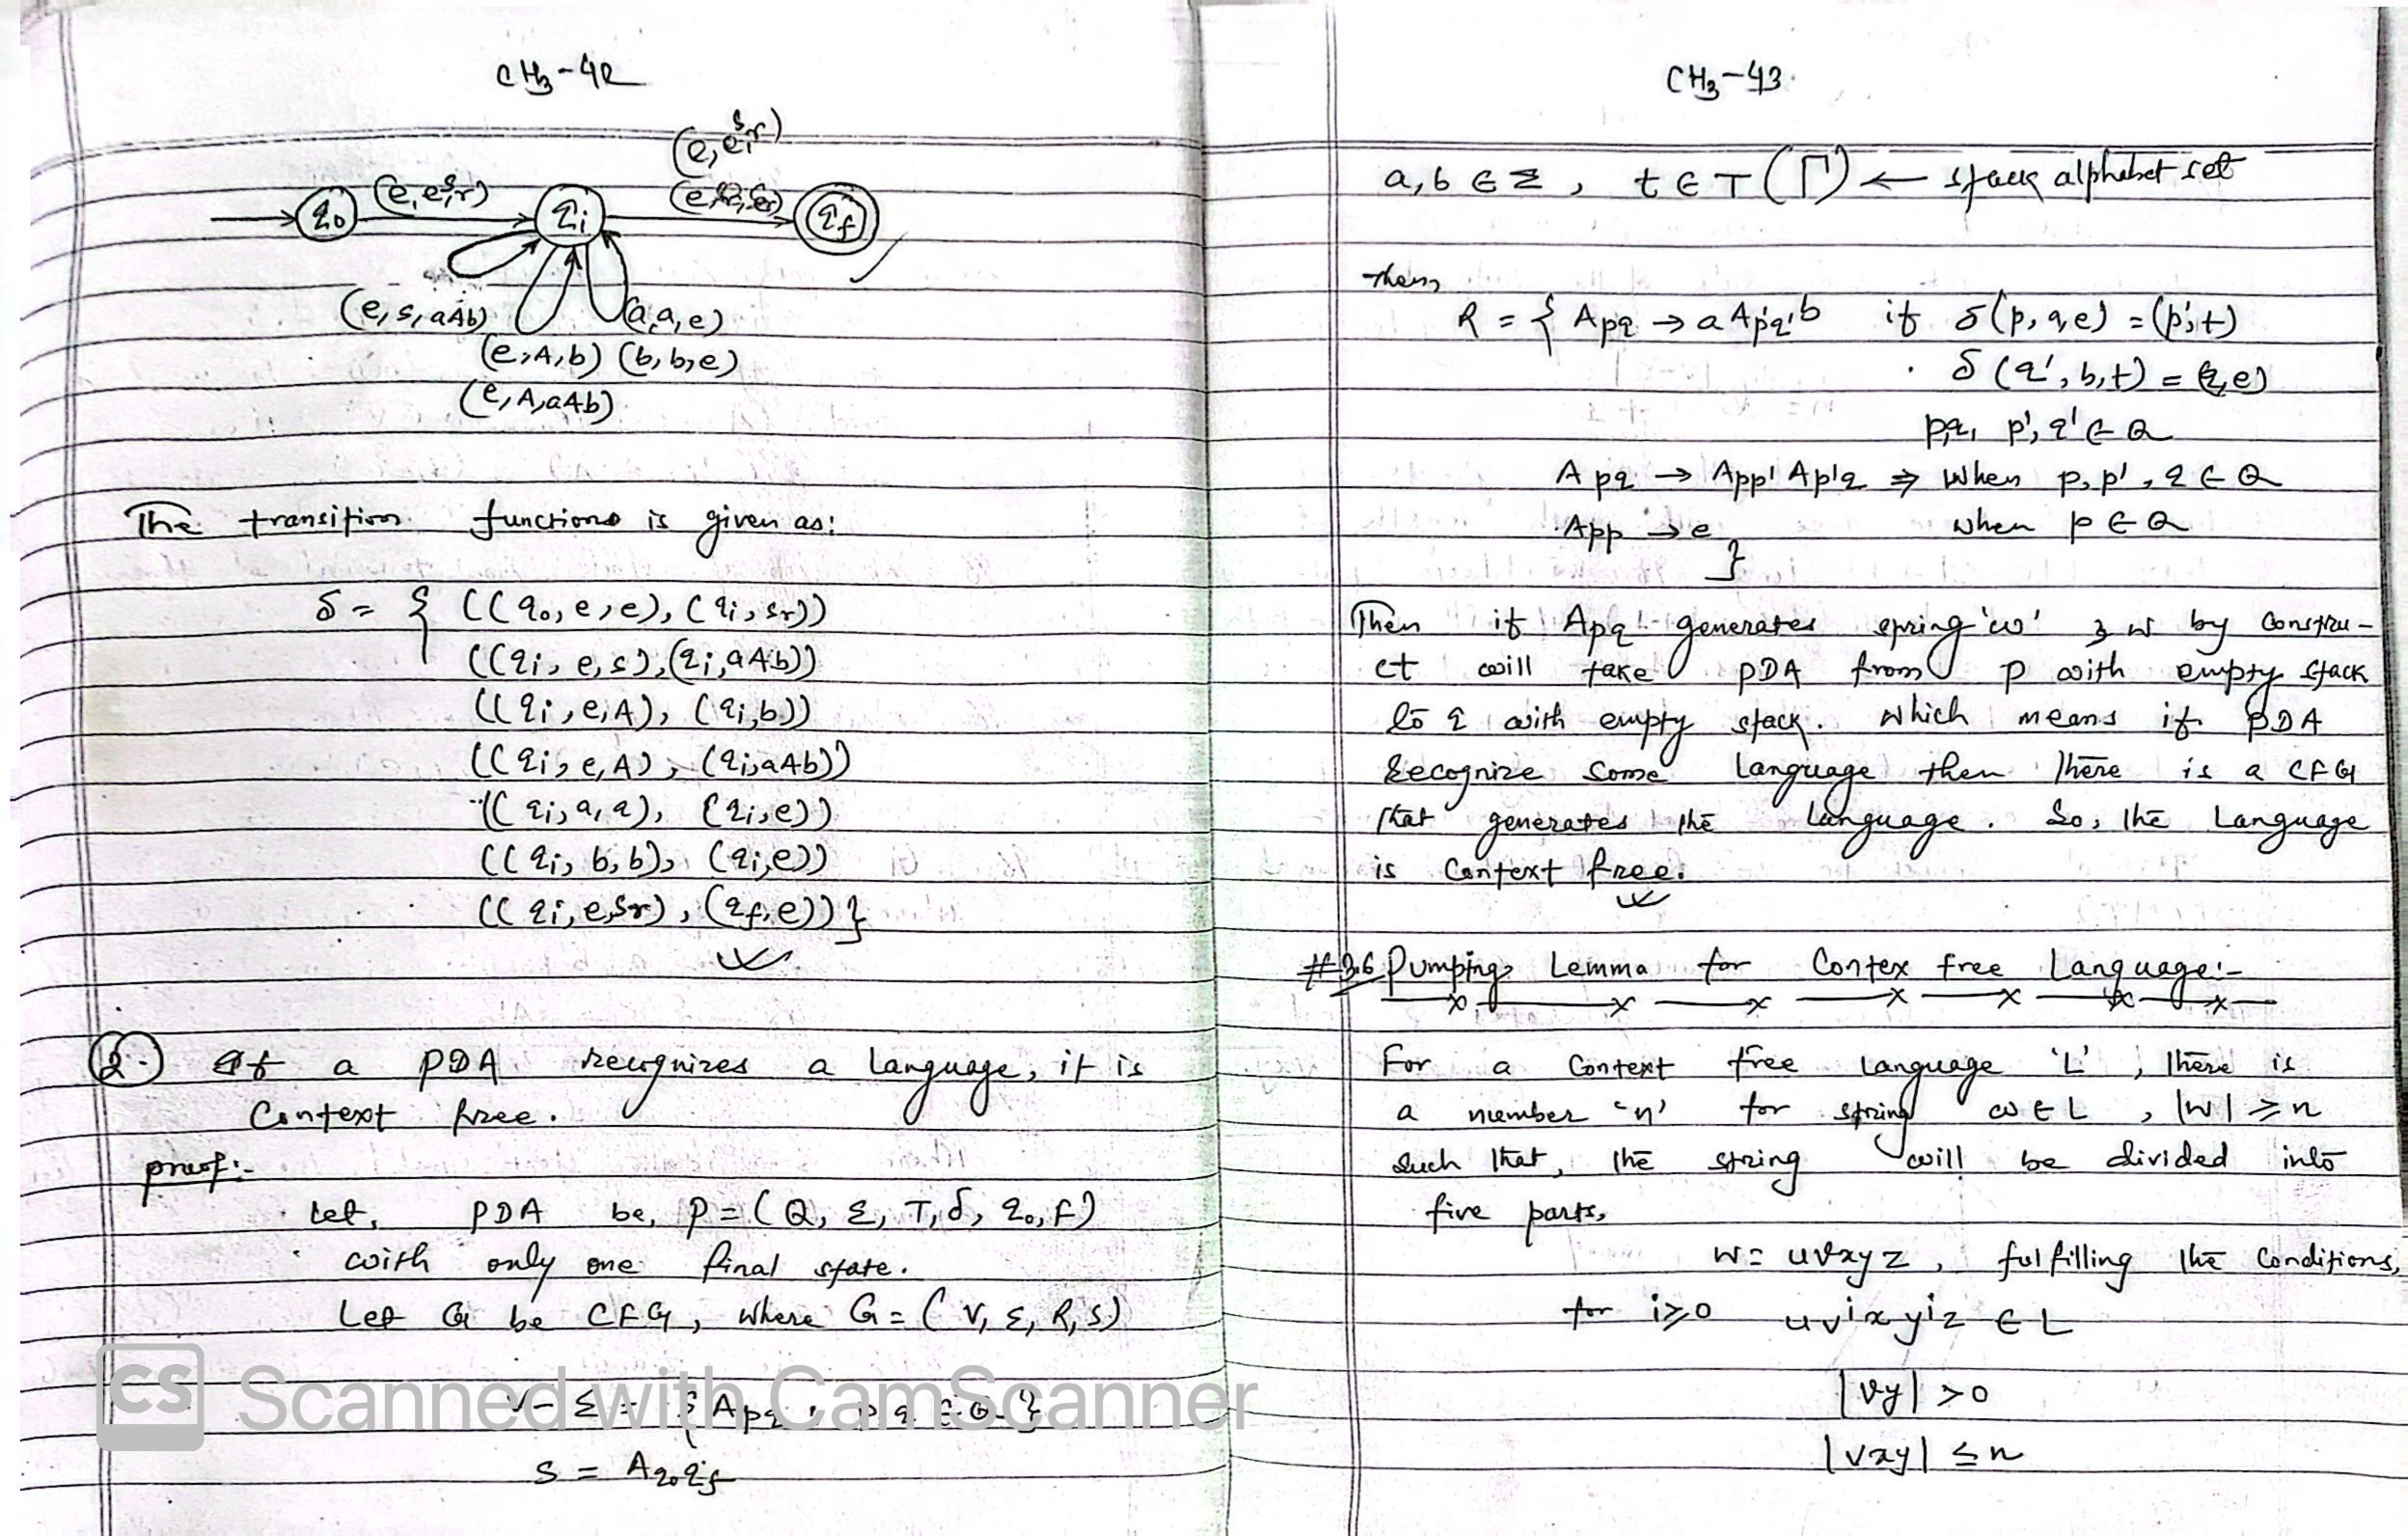 CH3-42
(e, e, sr)
(e, e, sr)
q0
qi
qf
(e, s, aAb)
(a, a, e)
(e, A, b) (b, b, e)
(e, A, aAb)
The transition functions is given as:
δ = { ((q0, e, e), (qi, sr))
((qi, e, s), (qi, aAb))
((qi, e, A), (qi, b))
((qi, e, A), (qi, aAb))
((qi, a, a), (qi, e))
((qi, b, b), (qi, e))
((qi, e, sr), (qf, e)) }
2. If a PDA recognizes a language, it is
Context free.
proof:-
Let, PDA be, P = (Q, Σ, T, δ, q0, F)
with only one final state.
Let G be CFG, where G = (V, Σ, R, S)
V - Σ = { Apq, p, q ∈ Q }
S = Aq0qf
CH3-43
a, b ∈ Σ, t ∈ T (Γ) ← stack alphabet set
then,
R = { Apq → a Ap'q' b if δ(p, a, e) = (p', t)
δ (q', b, t) = (q, e)
p, q, p', q' ∈ Q
Apq → App' Ap'q ⇒ When p, p', q ∈ Q
App → e when p ∈ Q
}
Then if Apq generates string 'w' by constru-
ct will take PDA from p with empty stack
to q with empty stack. Which means if PDA
Recognize some language then there is a CFG
that generates the language. So, the Language
is Context free.
#3.6 Pumping Lemma for Contex free Language:-
For a Context free language 'L', there is
a number 'n' for string w ∈ L, |w| ≥ n
Such that, the string will be divided into
five parts,
w = uvxyz, fulfilling the Conditions,
for i ≥ 0 uv^i x y^i z ∈ L
|vy| > 0
|vxy| ≤ n
CS Scanned with CamScanner